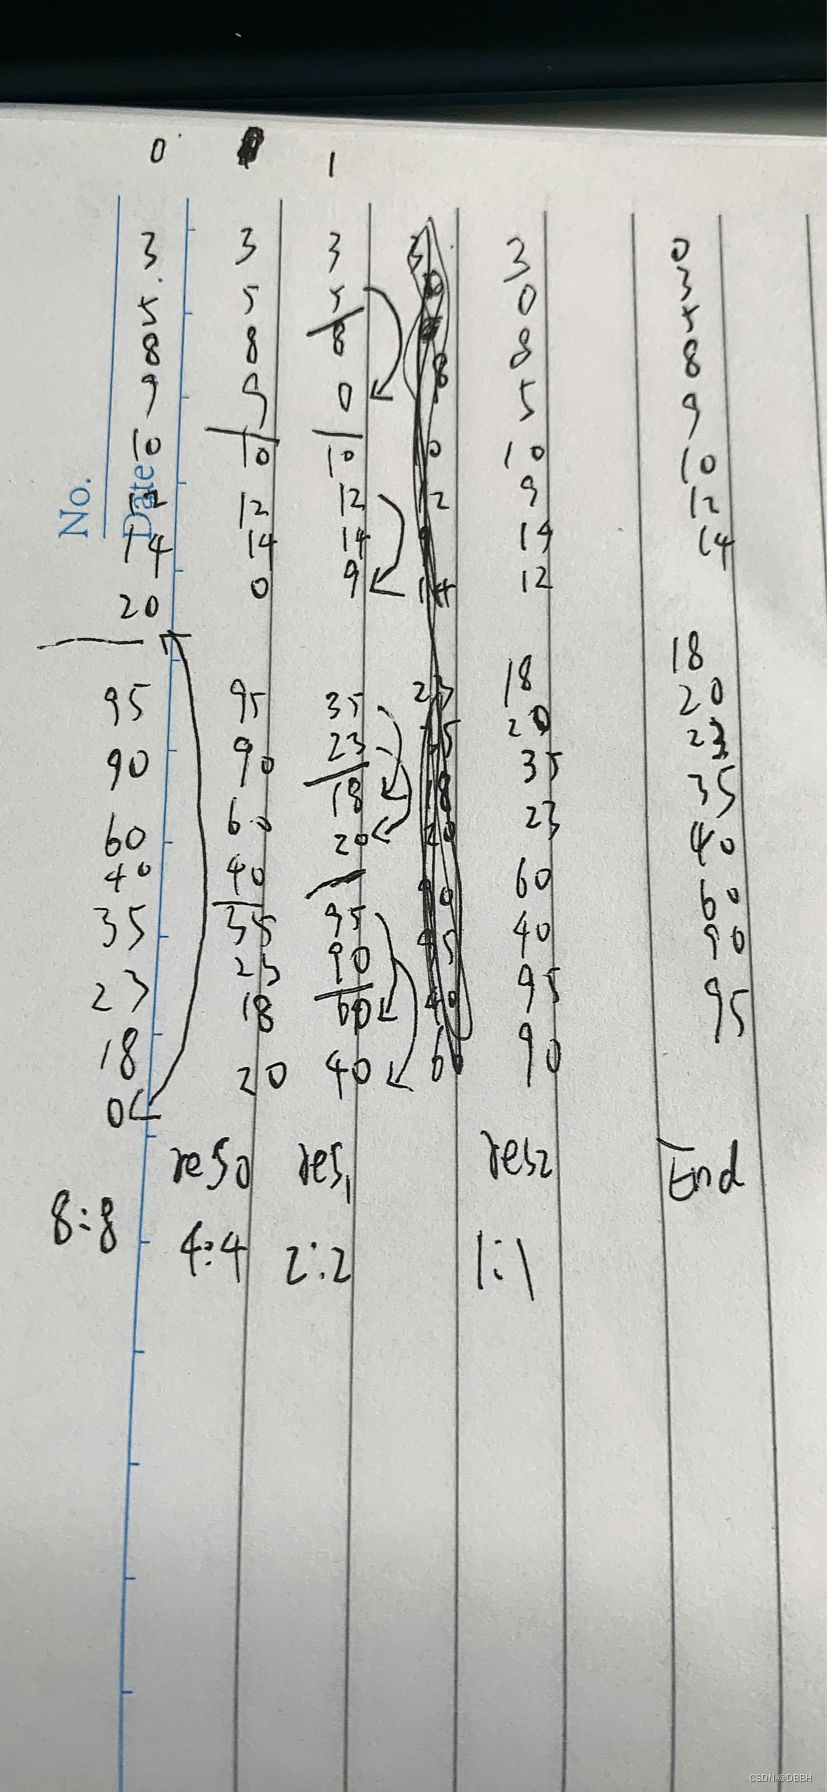 0 1
3 3 3 3 0
5 5 5 0 3
8 8 8 8 5
9 9 0 5 8
10 10 10 10 9
No. Date
12 12 12 9 10
14 14 14 14 12
20 0 9 12 14
95 95 35 18 18
90 90 23 20 20
60 60 18 35 23
40 40 20 23 35
35 35 95 60 40
23 23 90 40 60
18 18 60 95 90
0 20 40 90 95
res0 res1 res2 End
8:8 4:4 2:2 1:1
CSDN @DBBH